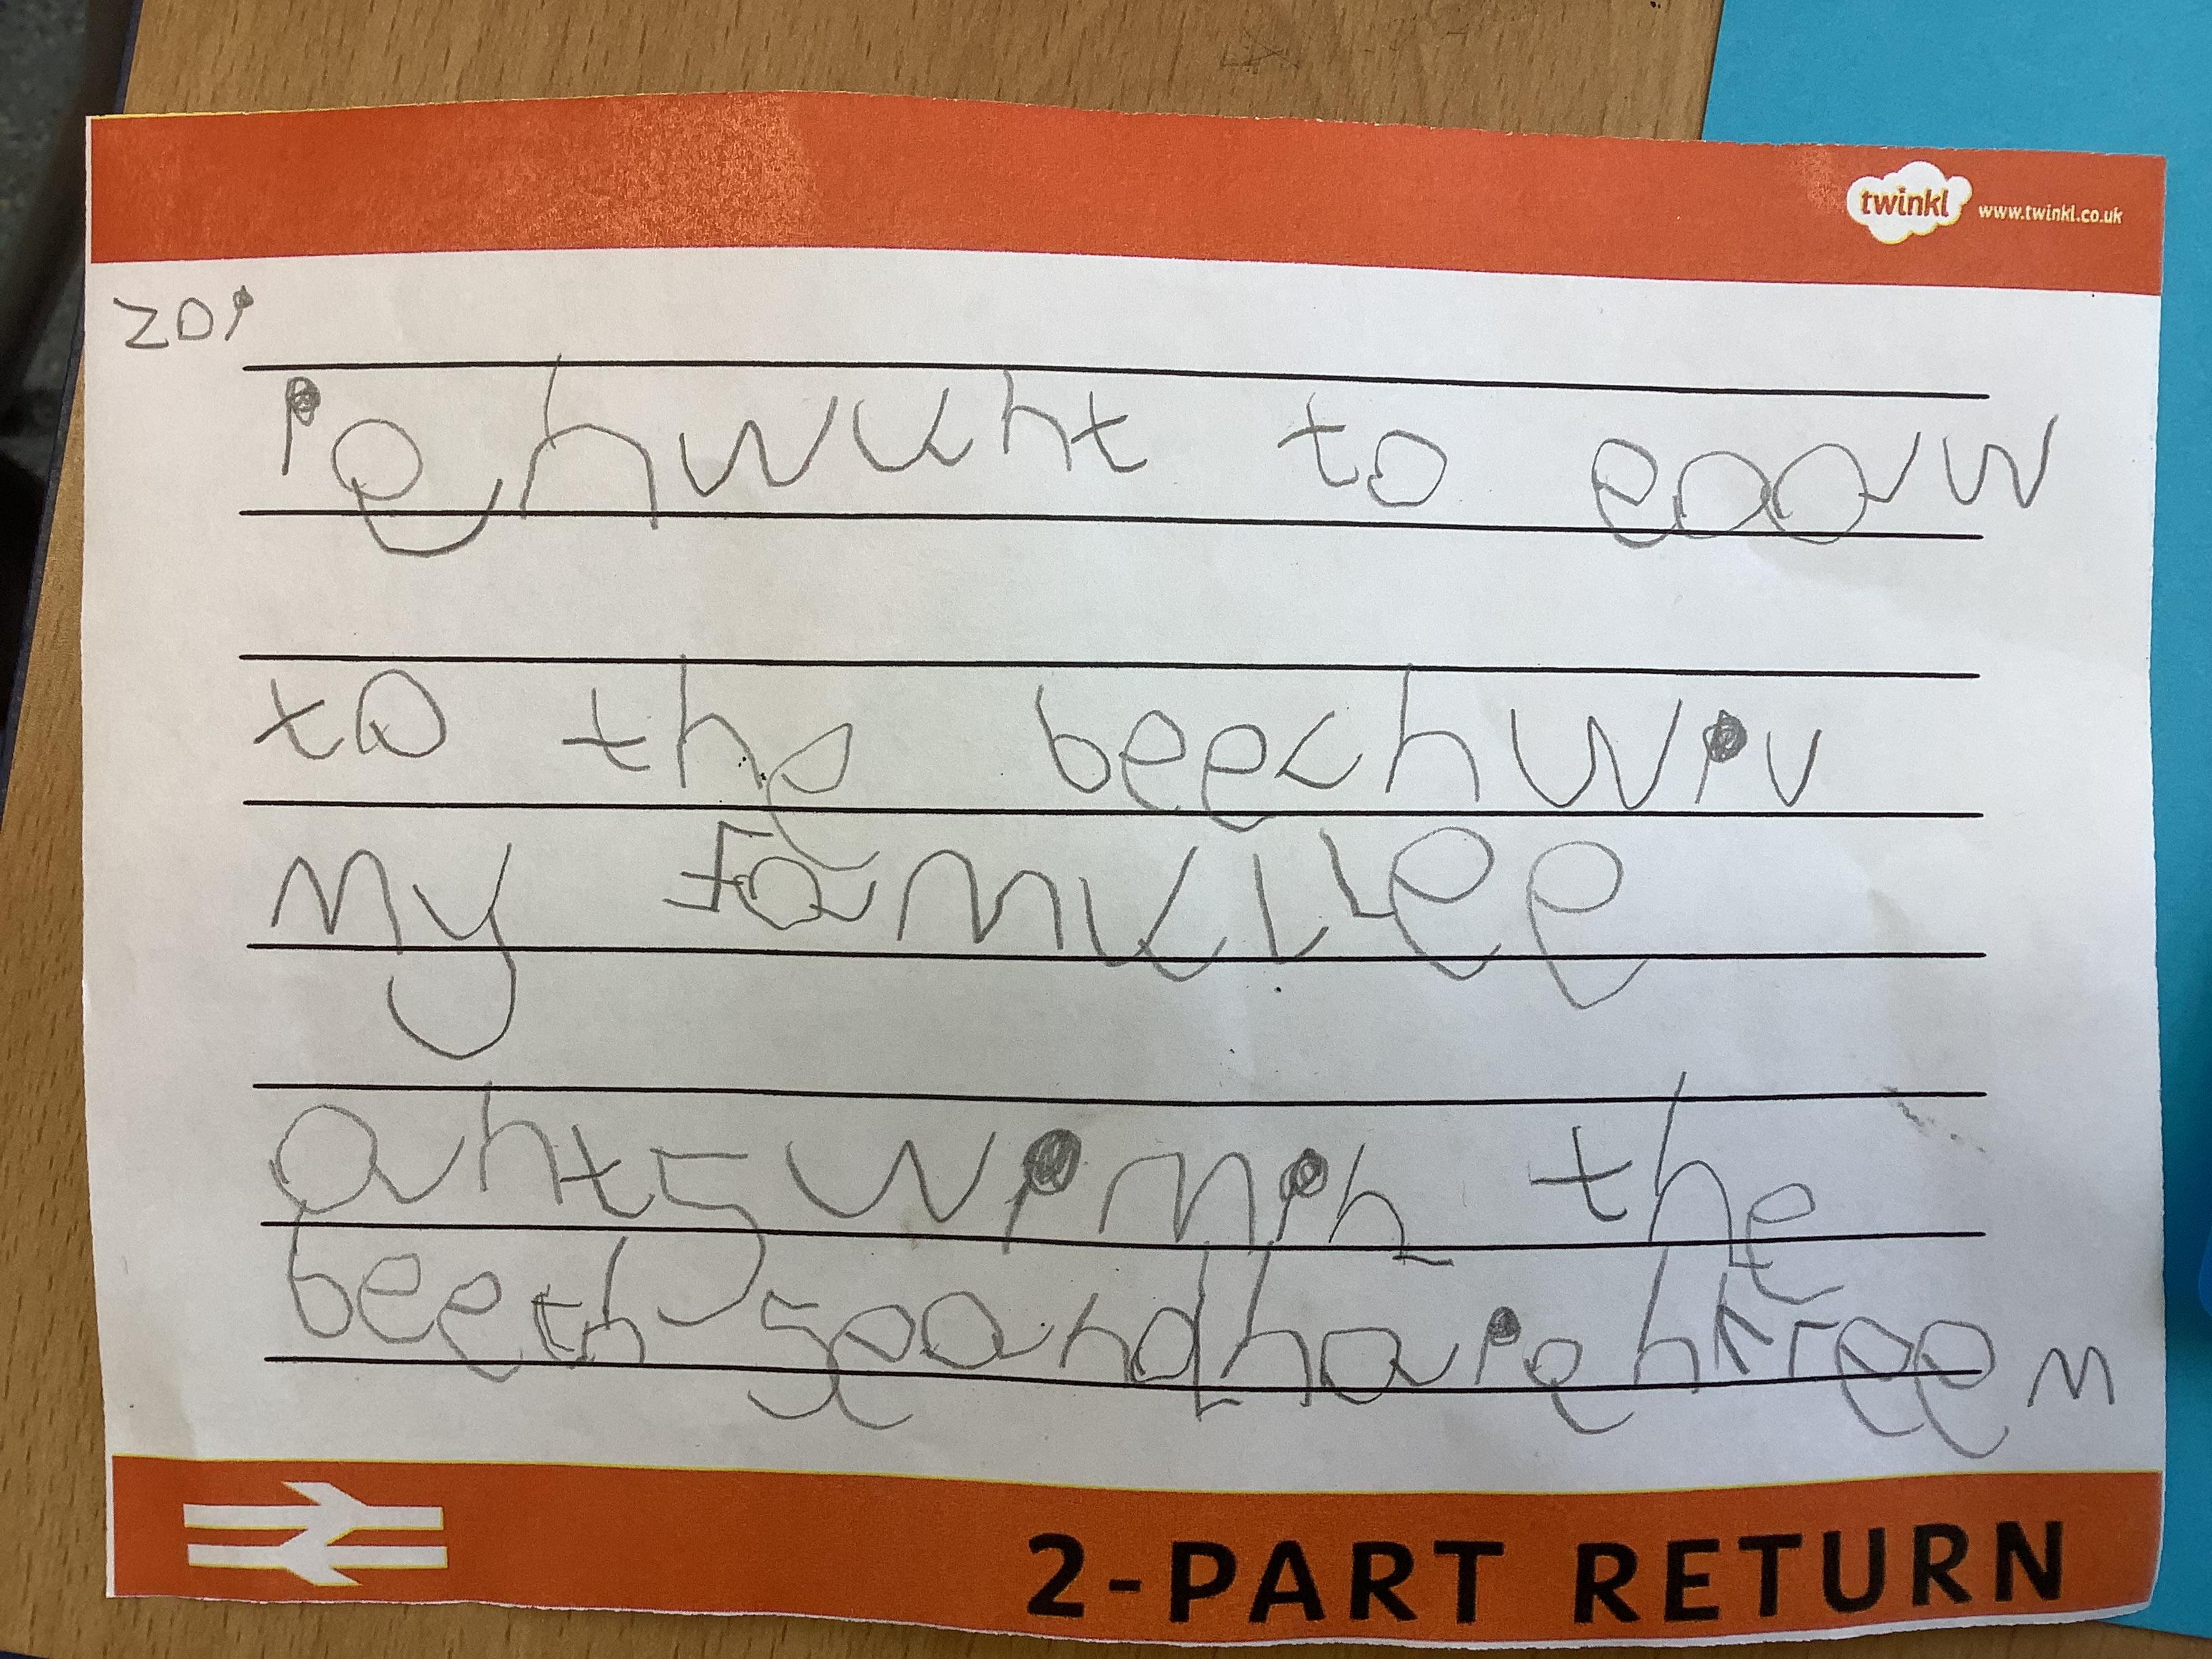 twinkl www.twinkl.co.uk
zoi
ie hwuht to eaaw
to the beechwiv
my famulee
ahtswimih the
beech seandhaiehkreem
2-PART RETURN